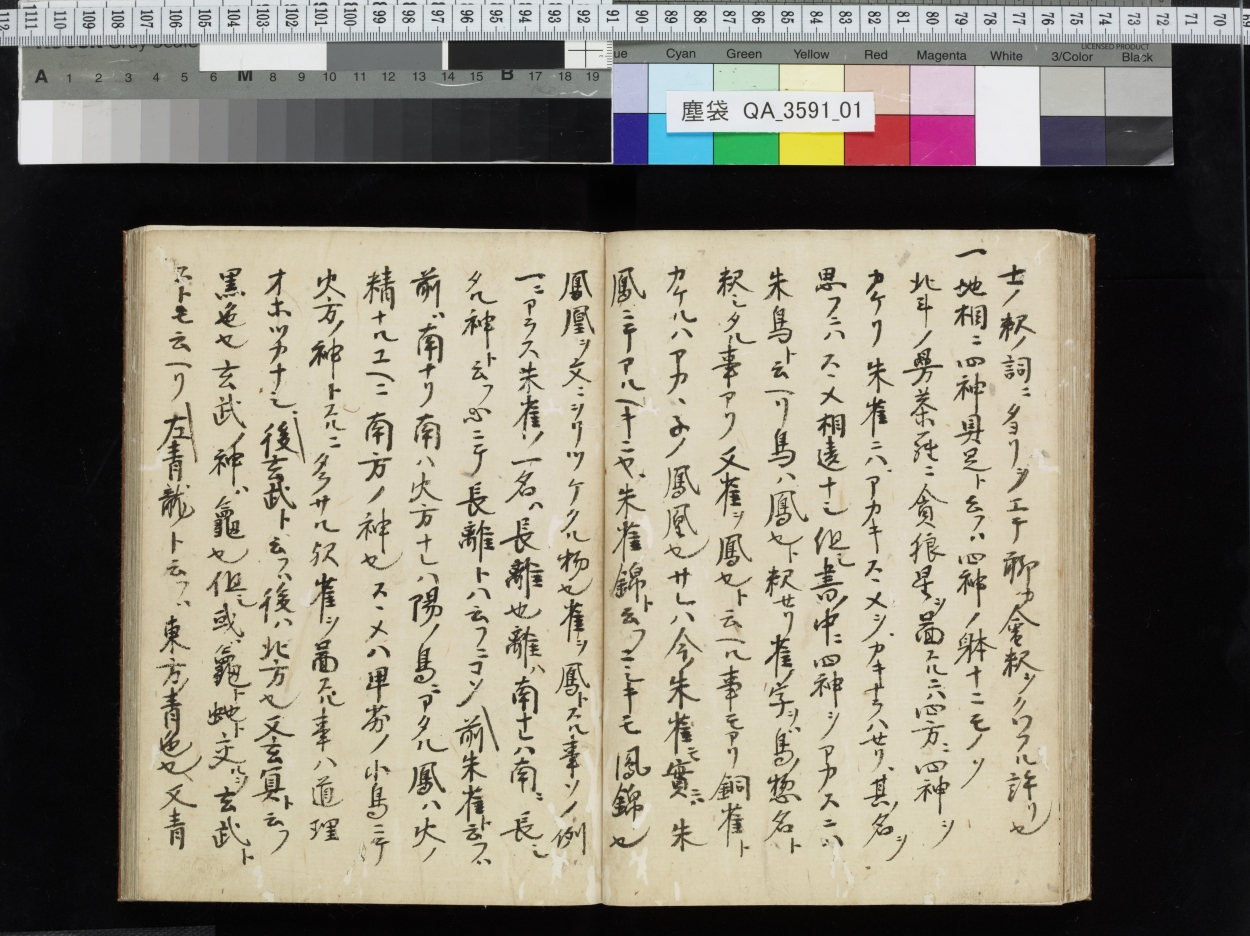 112 111 110 109 108 107 106 105 104 103 102 101 100 99 98 97 96 95 94 93 92 91 90 89 88 87 86 85 84 83 82 81 80 79 78 77 76 75 74 73 72 71 70 69
Gray Scale
A 1 2 3 4 5 6 M 8 9 10 11 12 13 14 15 B 17 18 19
Cyan Green Yellow Red Magenta White 3/Color Black
LICENSED PRODUCT
塵袋 QA_3591_01
士ノ釈ノ詞ニタヨリヲエテ聊カ會釈ヲクワフル許リ也
一地相ニ四神具足ト云フハ四神ノ躰ナニモノソ
北斗ノ曼荼羅ニ貪狼星ヲ啚スルニハ四方ニ四神ヲ
カケリ朱雀ニハアカキスヽメヲカキナラハセリ其ノ名ヲ
思フニハスヽメ相違ナシ但シ書ノ中ニ四神ヲアカスニハ
朱鳥ト云ヘリ鳥ハ鳳也ト釈セリ雀ノ字ヲハ鳥ノ惣名ト
釈シタル事アリ又雀ヲ鳳也ト云ヘル事モアリ銅雀ト
カケルハアカヽネノ鳳凰也サレハ今ノ朱雀モ實ニハ朱
鳳ニテアルヘキニヤ朱雀錦ト云フニシキモ鳳錦也
鳳凰ヲ文ニヲリツケタル物也雀ヲ鳳トスル事ソノ例
一ニアラス朱雀ノ一名ハ長離也離ハ南ナレハ南ニ長シ
タル神ト云フ心ニテ長離トハ云フニコソ前朱雀ト云フハ
前ハ南ナリ南ハ火方ナレハ陽ノ鳥ニアタル鳳ハ火ノ
精ナルユヘニ南方ノ神也スヽメハ卑劣ノ小鳥ニテ
火方ノ神トスルニタラサル欤雀ヲ啚スル事ハ道理
オホツカナシ後玄武ト云フハ後ハ北方也又玄冥ト云フ
黒色也玄武ノ神ハ龜也但シ或ハ龜ト虵ト交ルヲ玄武ト
ストモ云ヘリ左青龍ト云フハ東方ノ青色也又青